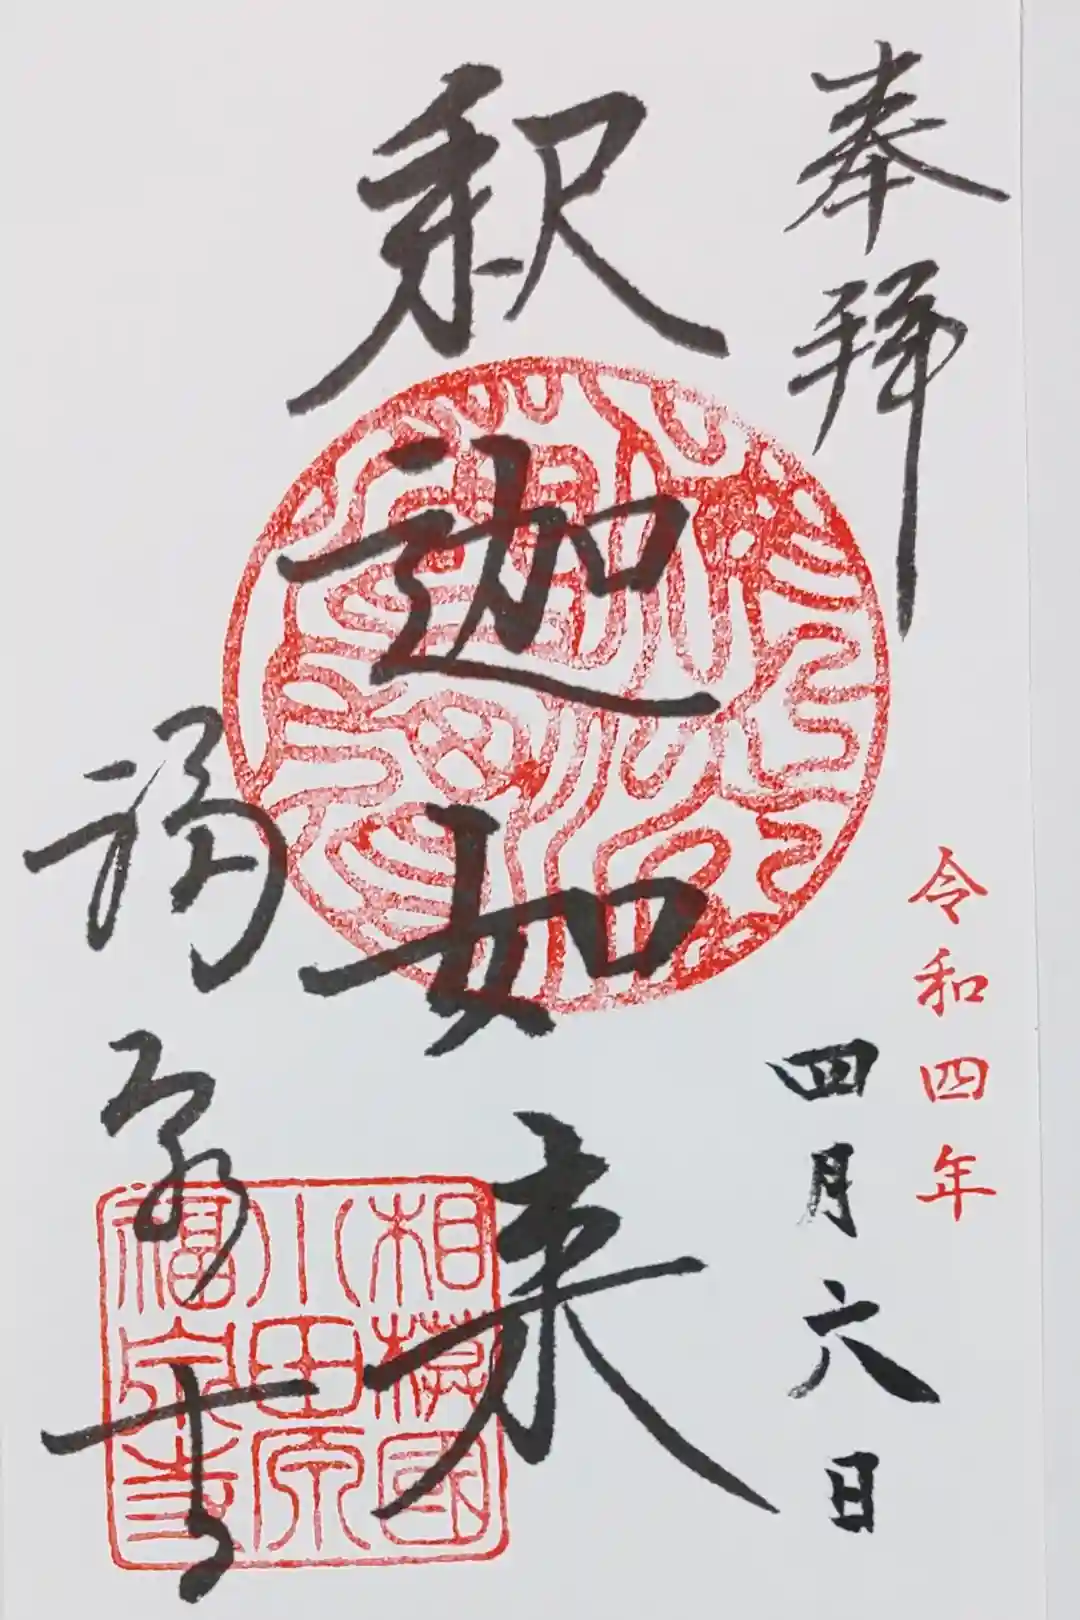 奉拝
令和四年
四月六日
釈迦如来
福泉寺
相模國
小田原
福泉寺